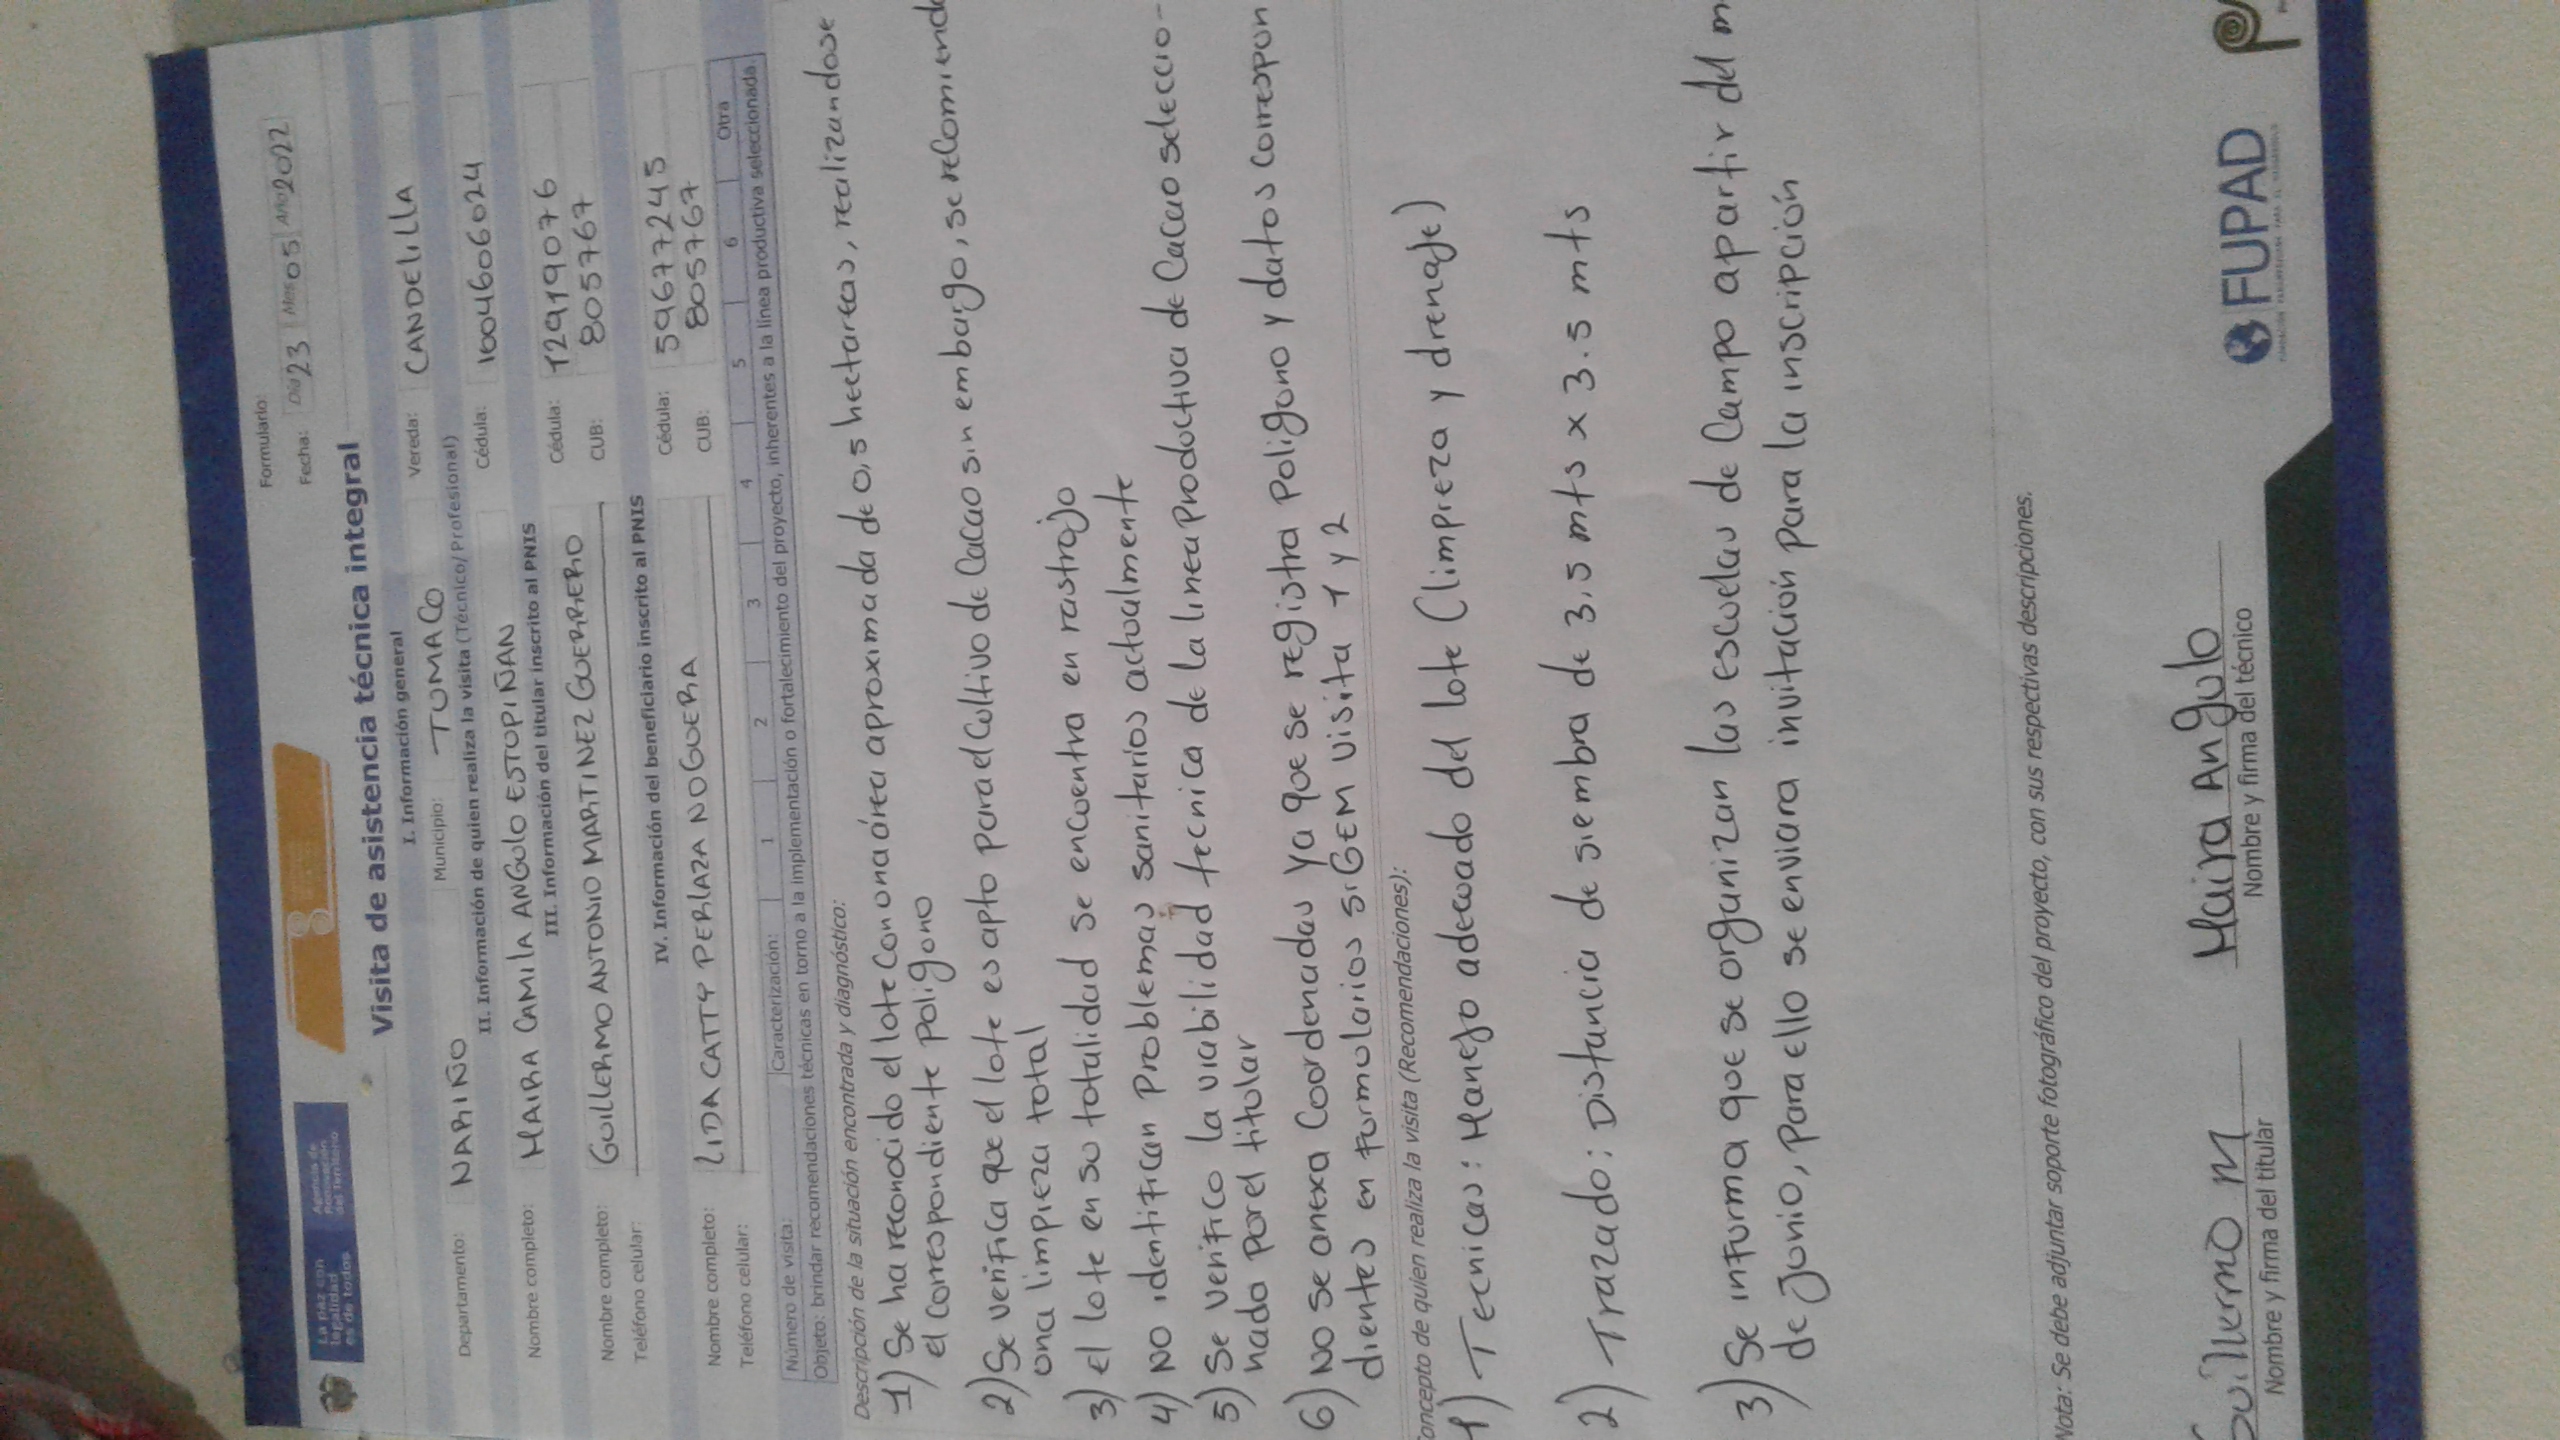 La paz con
legalidad
es de todos
Agencia de
Renovación
del Territorio
Formulario:
Fecha: Día 23 Mes 05 Año 2022
Visita de asistencia técnica integral
I. Información general
Departamento: NARIÑO Municipio: TUMACO Vereda: CANDELILLA
II. Información de quien realiza la visita (Técnico/Profesional)
Nombre completo: MAIRA CAMILA ANGULO ESTOPIÑAN Cédula: 1004606024
III. Información del titular inscrito al PNIS
Nombre completo: GUILLERMO ANTONIO MARTINEZ GUERRERO Cédula: 12919076
Teléfono celular: CUB: 805767
IV. Información del beneficiario inscrito al PNIS
Nombre completo: LIDA CATTY PERLAZA NOGUERA Cédula: 59677245
Teléfono celular: CUB: 805767
Número de visita: Caracterización: 1 2 3 4 5 6 Otra
Objeto: brindar recomendaciones técnicas en torno a la implementación o fortalecimiento del proyecto, inherentes a la línea productiva seleccionada.
Descripción de la situación encontrada y diagnóstico:
1) Se ha reconocido el lote con una área aproximada de 0,5 hectareas, realizandose
el correspondiente poligono
2) Se verifica que el lote es apto para el cultivo de cacao sin embargo, se recomienda
una limpieza total
3) el lote en su totalidad se encuentra en rastrojo
4) No identifican problemas sanitarios actualmente
5) Se verifico la viabilidad tecnica de la linea productiva de cacao seleccio-
nada por el titular
6) No se anexa coordenadas ya que se registra poligono y datos correspon
dientes en formularios siGEM visita 1 y 2
oncepto de quien realiza la visita (Recomendaciones):
1) Tecnicas: Manejo adecuado del lote (limpreza y drenaje)
2) Trazado: Distancia de siembra de 3,5 mts x 3.5 mts
3) Se informa que se organizan las escuelas de campo apartir del m
de junio, para ello se enviara invitación para la inscripción
Nota: Se debe adjuntar soporte fotográfico del proyecto, con sus respectivas descripciones.
Guillermo M
Nombre y firma del titular
Maira Angulo
Nombre y firma del técnico
FUPAD